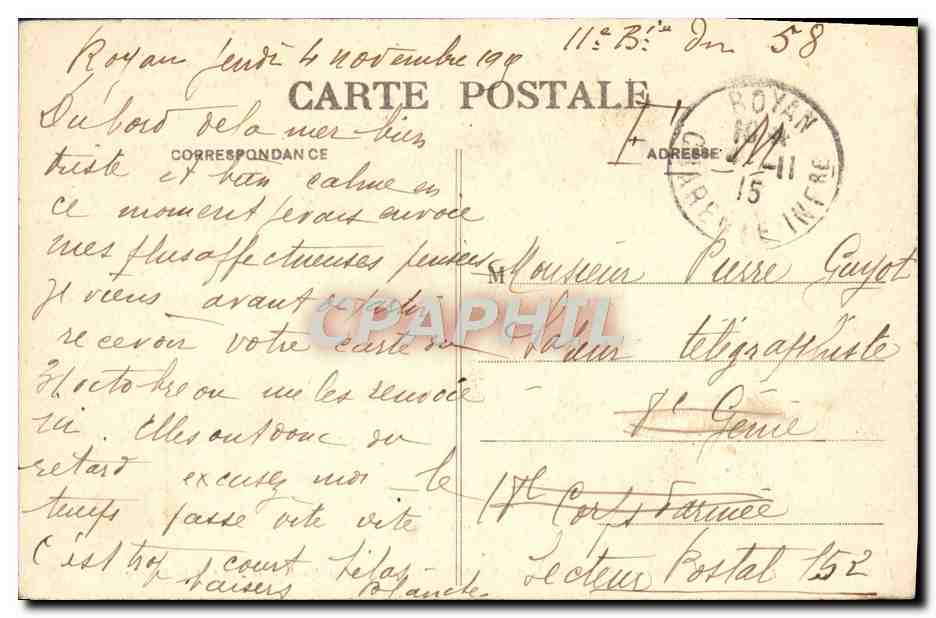 Royan Jeudi 4 novembre 19
11e Bie du 58
CARTE POSTALE
Du bord de la mer bien
CORRESPONDANCE
triste et bien calme en
ce moment je vais envoie
mes plus affectueuses pensées
je viens avant de partir
recevoir votre carte du
31 octobre on me les renvoie
ici. Elles ont donc du
retard excusez moi le
temps passe vite vite
c'est trop court hélas
baisers Blanche
F.
ADRESSE
ROYAN
11
15
CHARENTE INFRE
M Monsieur Pierre Guyot
Sapeur télégraphiste
Génie
Corps d'armée
Secteur Postal 152
CPAPHIL